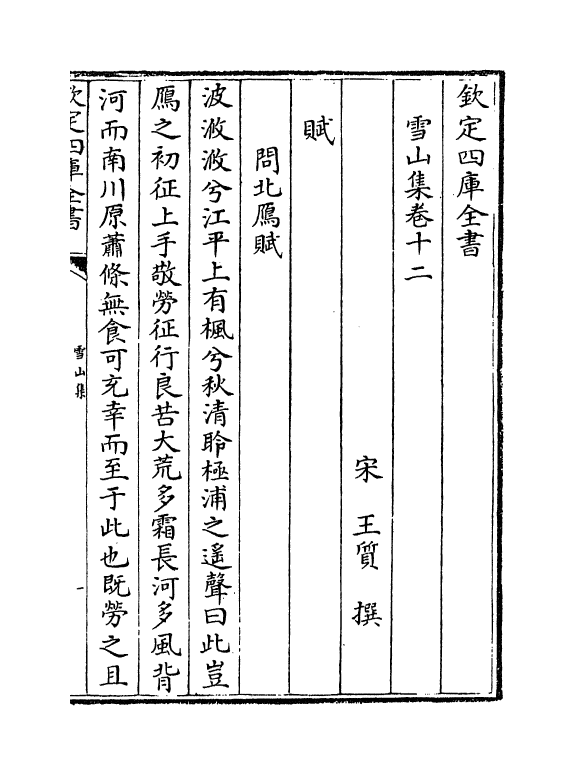 欽定四庫全書
雪山集卷十二
宋 王質 撰
賦
問北鴈賦
波浟浟兮江平上有楓兮秋清聆極浦之遙聲曰此豈
鴈之初征上手敬勞征行良苦大荒多霜長河多風背
河而南川原蕭條無食可充幸而至于此也既勞之且
欽定四庫全書
雪山集
一